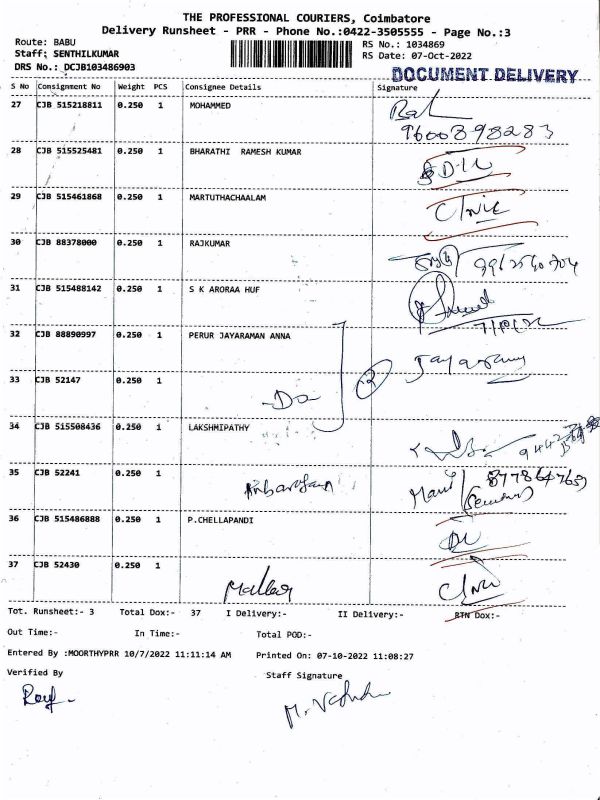 THE PROFESSIONAL COURIERS, Coimbatore
Delivery Runsheet - PRR - Phone No.:0422-3505555 - Page No.:3
Route: BABU
Staff: SENTHILKUMAR
DRS No.: DCJB103486903
RS No.: 1034869
RS Date: 07-Oct-2022
DOCUMENT DELIVERY
S No Consignment No Weight PCS Consignee Details Signature
27 CJB 515218811 0.250 1 MOHAMMED
9600898283
28 CJB 515525481 0.250 1 BHARATHI RAMESH KUMAR
29 CJB 515461868 0.250 1 MARTUTHACHAALAM
Clinic
30 CJB 88378000 0.250 1 RAJKUMAR
31 CJB 515488142 0.250 1 S K ARORAA HUF
32 CJB 88890997 0.250 1 PERUR JAYARAMAN ANNA
Jayaraman
33 CJB 52147 0.250 1 -Do 2
34 CJB 515508436 0.250 1 LAKSHMIPATHY
35 CJB 52241 0.250 1
36 CJB 515486888 0.250 1 P.CHELLAPANDI
37 CJB 52430 0.250 1
Tot. Runsheet:- 3 Total Dox:- 37 I Delivery:- II Delivery:- RTN Dox:-
Out Time:- In Time:- Total POD:-
Entered By :MOORTHYPRR 10/7/2022 11:11:14 AM Printed On: 07-10-2022 11:08:27
Verified By Staff Signature